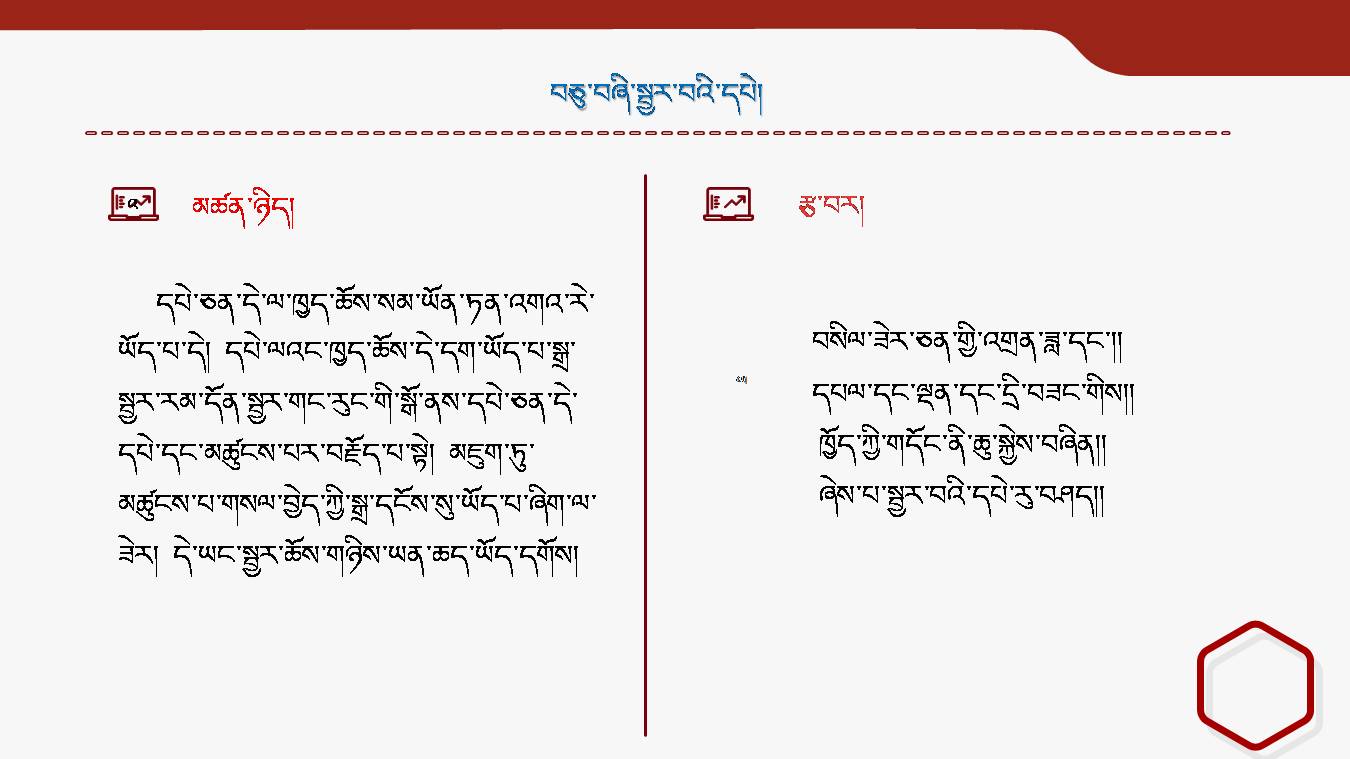 བཅུ་བཞི་སྦྱར་བའི་དཔེ།
མཚན་ཉིད།
དཔེ་ཅན་དེ་ལ་ཁྱད་ཆོས་སམ་ཡོན་ཏན་འགའ་རེ་
ཡོད་པ་དེ། དཔེ་ལའང་ཁྱད་ཆོས་དེ་དག་ཡོད་པ་སྒྲ་
སྦྱར་རམ་དོན་སྦྱར་གང་རུང་གི་སྒོ་ནས་དཔེ་ཅན་དེ་
དཔེ་དང་མཚུངས་པར་བརྗོད་པ་སྟེ། མཇུག་ཏུ་
མཚུངས་པ་གསལ་བྱེད་ཀྱི་སྒྲ་དངོས་སུ་ཡོད་པ་ཞིག་ལ་
ཟེར། དེ་ཡང་སྦྱར་ཆོས་གཉིས་ཡན་ཆད་ཡོད་དགོས།
རྩ་བར།
བསིལ་ཟེར་ཅན་གྱི་འགྲན་ཟླ་དང་།།
དཔལ་དང་ལྡན་དང་དྲི་བཟང་གིས།།
ཁྱོད་ཀྱི་གདོང་ནི་ཆུ་སྐྱེས་བཞིན།།
ཞེས་པ་སྦྱར་བའི་དཔེ་རུ་བཤད།།